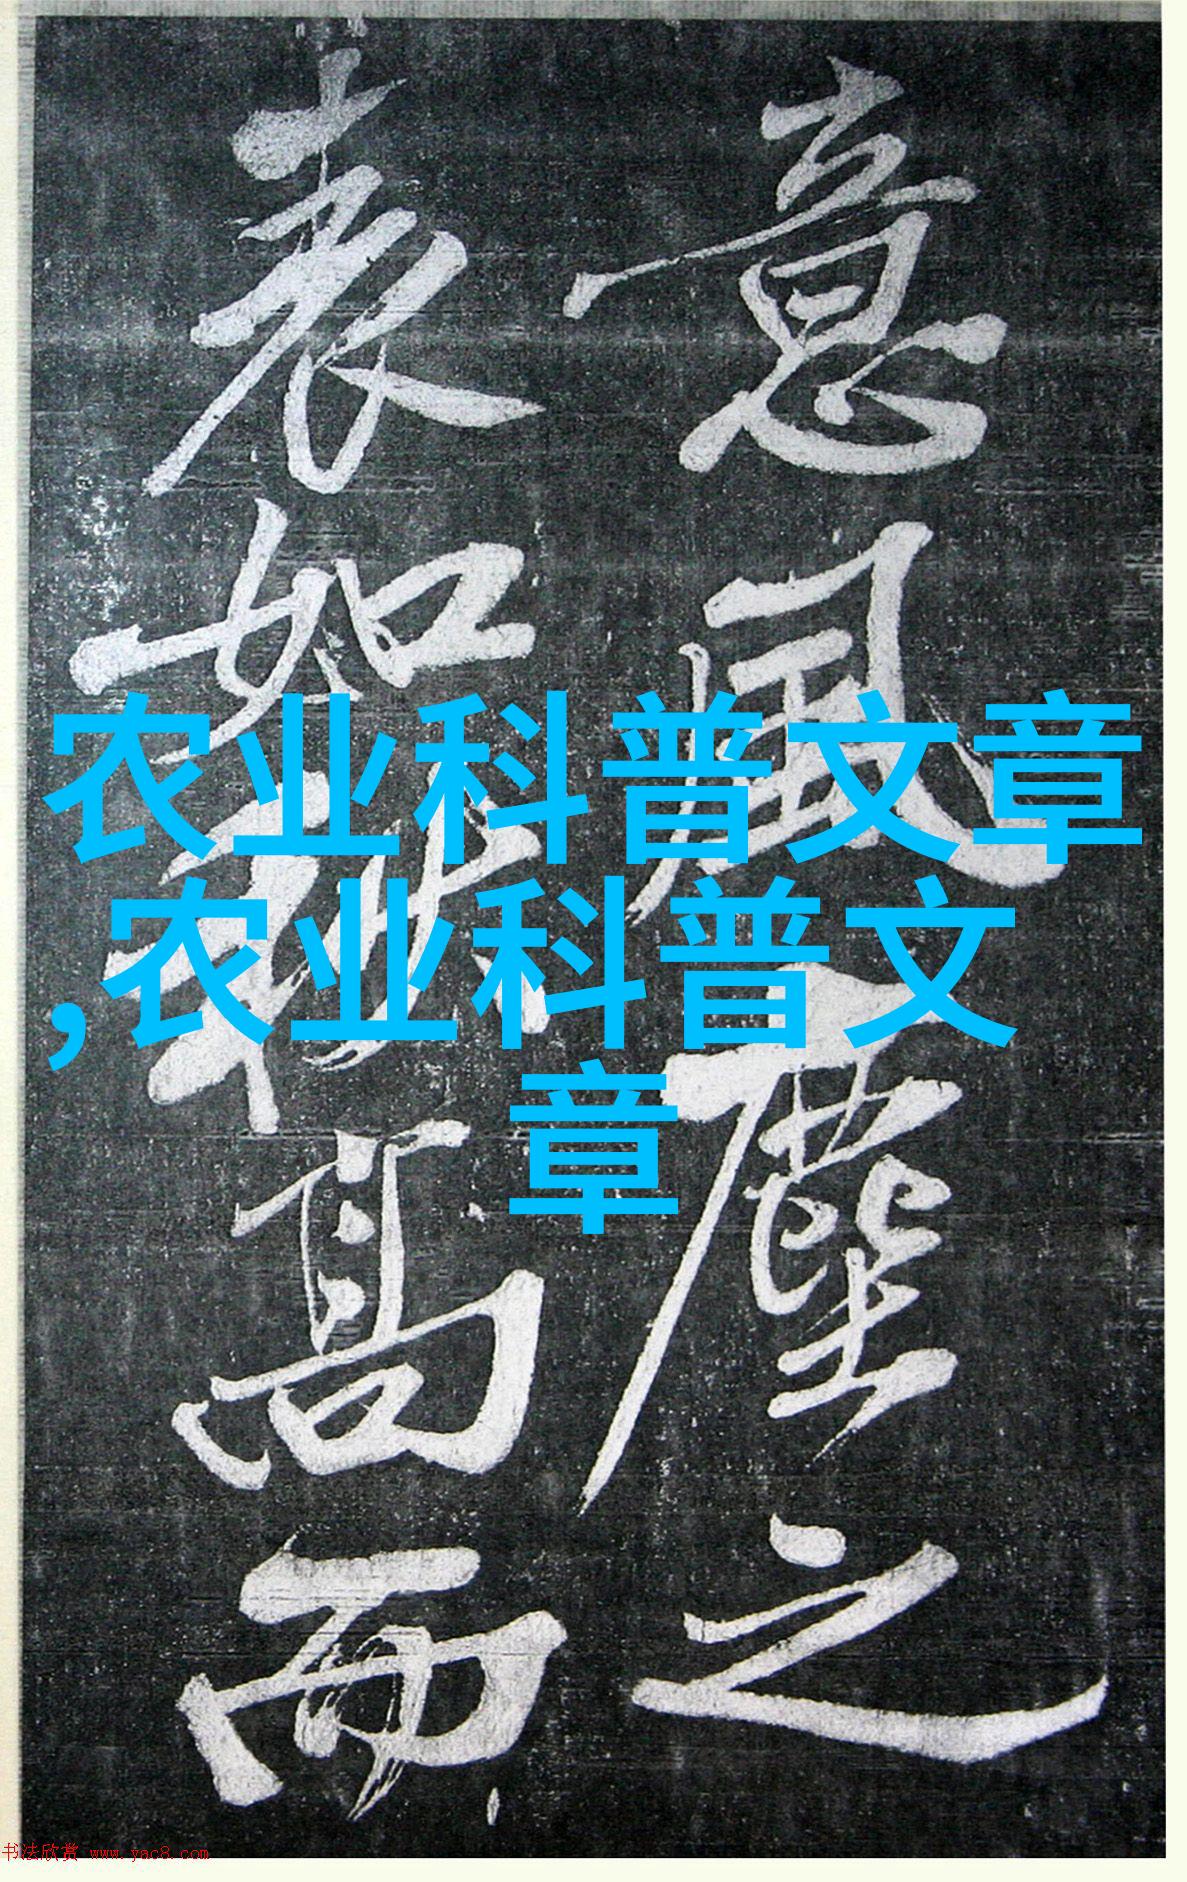 意風塵之
表如高而
农业科普文章
,农业科普文
章
书法欣赏 www.yac8.com